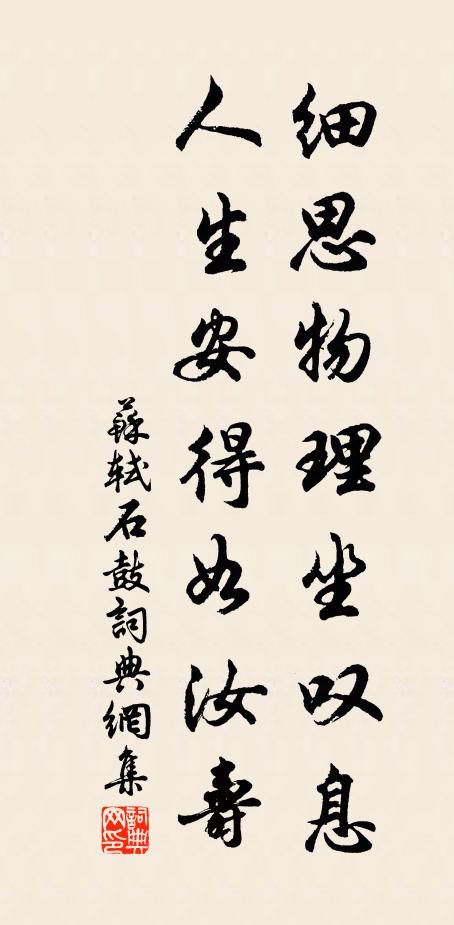 细思物理坐叹息
人生安得如汝壽
蘇軾石鼓詞典網集
詞典网印